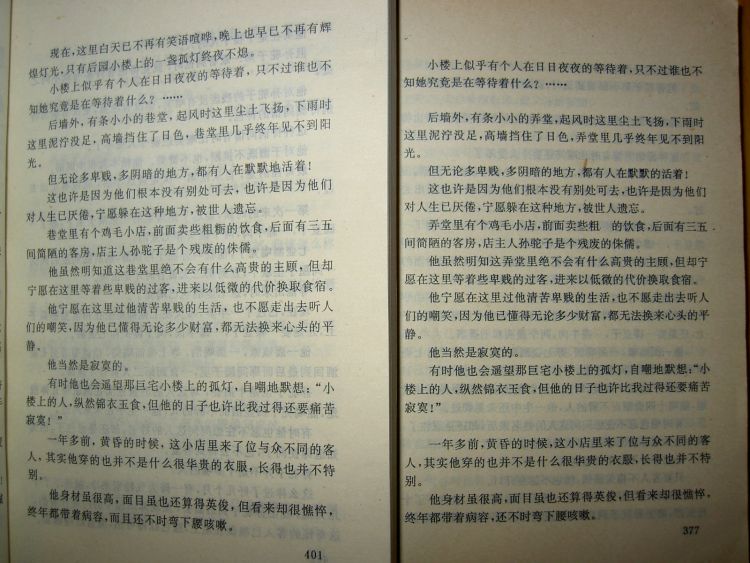 现在，这里白天已不再有笑语喧哗，晚上也早已不再有辉
煌灯光，只有后园小楼上的一盏孤灯终夜不熄。
小楼上似乎有个人在日日夜夜的等待着，只不过谁也不
知她究竟是在等待着什么？……
后墙外，有条小小的巷堂，起风时这里尘土飞扬，下雨时
这里泥泞没足，高墙挡住了日色，巷堂里几乎终年见不到阳
光。
但无论多卑贱，多阴暗的地方，都有人在默默地活着！
这也许是因为他们根本没有别处可去，也许是因为他们
对人生已厌倦，宁愿躲在这种地方，被世人遗忘。
巷堂里有个鸡毛小店，前面卖些粗粝的饮食，后面有三五
间简陋的客房，店主人孙驼子是个残废的侏儒。
他虽然明知道这巷堂里绝不会有什么高贵的主顾，但却
宁愿在这里等着些卑贱的过客，进来以低微的代价换取食宿。
他宁愿在这里过他清苦卑贱的生活，也不愿走出去听人
们的嘲笑，因为他已懂得无论多少财富，都无法换来心头的平
静。
他当然是寂寞的。
有时他也会遥望那巨宅小楼上的孤灯，自嘲地默想：“小
楼上的人，纵然锦衣玉食，但他的日子也许比我过得还要痛苦
寂寞！”
一年多前，黄昏的时候，这小店里来了位与众不同的客
人，其实他穿的也并不是什么很华贵的衣服，长得也并不特
别。
他身材虽很高，面目虽也还算得英俊，但看来却很憔悴，
终年都带着病容，而且还不时弯下腰咳嗽。
401
小楼上似乎有个人在日日夜夜的等待着，只不过谁也不
知她究竟是在等待着什么？……
后墙外，有条小小的弄堂，起风时这里尘土飞扬，下雨时
这里泥泞没足，高墙挡住了日色，弄堂里几乎终年见不到阳
光。
但无论多卑贱，多阴暗的地方，都有人在默默的活着！
这也许是因为他们根本没有别处可去，也许是因为他们
对人生已厌倦，宁愿躲在这种地方，被世人遗忘。
弄堂里有个鸡毛小店，前面卖些粗 的饮食，后面有三五
间简陋的客房，店主人孙驼子是个残废的侏儒。
他虽然明知这弄堂里绝不会有什么高贵的主顾，但却宁
愿在这里等着些卑贱的过客，进来以低微的代价换取食宿。
他宁愿在这里过他清苦卑贱的生活，也不愿走出去听人
们的嘲笑，因为他已懂得无论多少财富，都无法换来心头的平
静。
他当然是寂寞的。
有时他也会遥望那巨宅小楼上的孤灯，自嘲地默想：“小
楼上的人，纵然锦衣玉食，但他的日子也许比我过得还要痛苦
寂寞！”
一年多前，黄昏的时候，这小店里来了位与众不同的客
人，其实他穿的也并不是什么很华贵的衣服，长得也并不特
别。
他身材虽很高，面目虽也还算得英俊，但看来却很憔悴，
终年都带着病容，还不时弯下腰咳嗽。
377